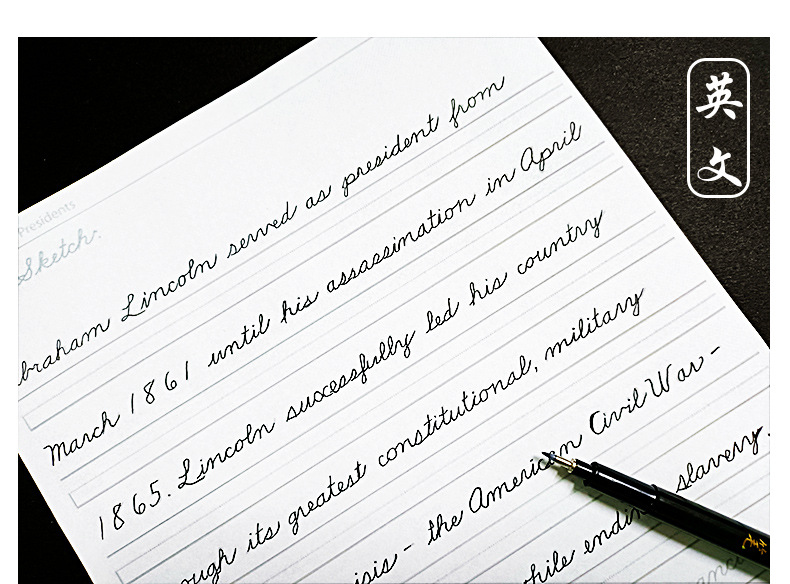 英文
Presidents
Sketch:
braham Lincoln served as president from
March 1861 until his assassination in April
1865. Lincoln successfully led his country
ough its greatest constitutional, military
isis - the American Civil War -
hile ending slavery.